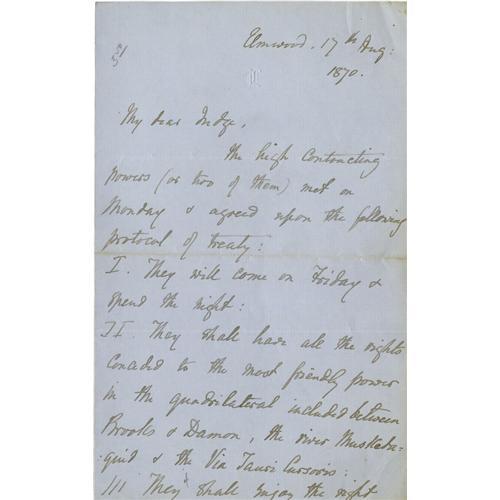 Elmwood, 17th Aug:
1870.
My dear Judge,
The high contracting
powers (or two of them) met on
Monday & agreed upon the following
protocol of treaty:
I. They will come on Friday &
spend the night:
II They shall have all the rights
conceded to the most friendly power
in the quadrilateral included between
Brooks & Damon, the river Musketa-
quid & the Via Tauri Cursoris:
III They shall enjoy the right